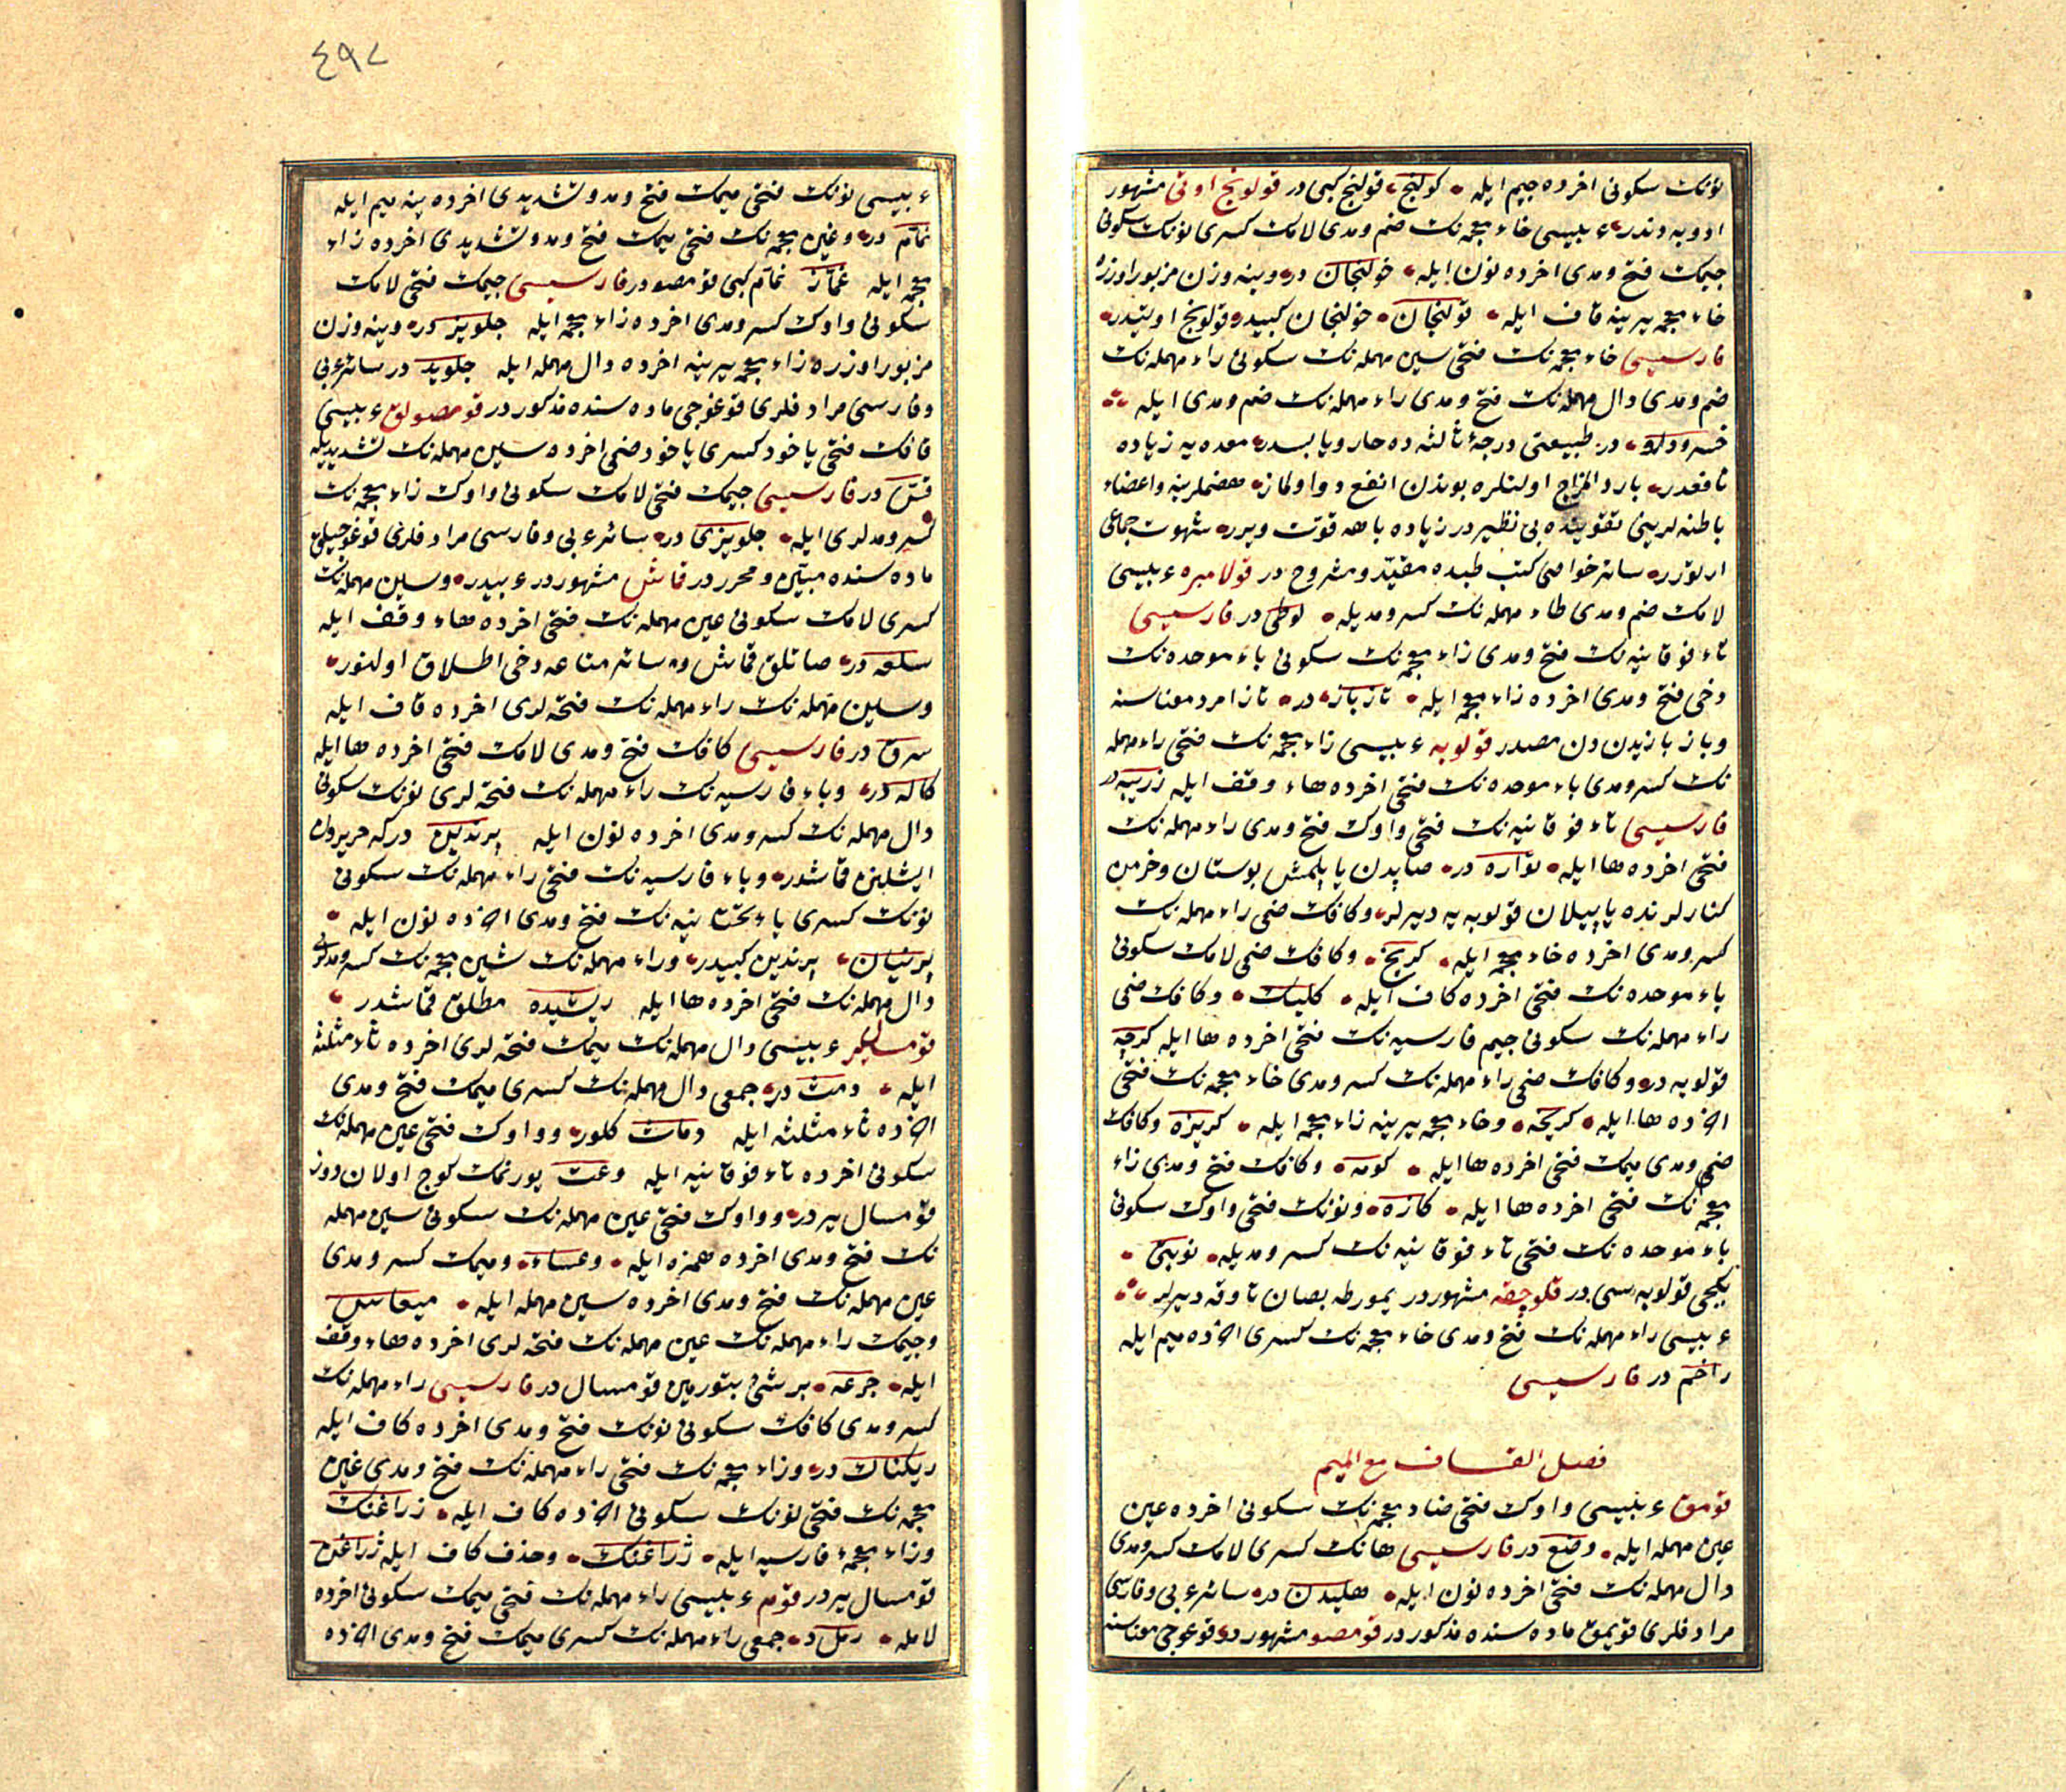 نونك سكونى اخرده جيم ايله كولنج قولنج كبى در قولونج اوتى مشهور
ادويه دندر عربيسى خاء معجمه نك ضم ومدى لامك كسرى نونك سكونى
جيمك فتح ومدى اخرده نون ايله خولنجان در وينه وزن مزبور اوزره
خاء معجمه يرينه قاف ايله قولنجان خولنجان كبيدر قولونج اوتيدر
فارسيسى خاء معجمه نك فتحى سين مهمله نك سكونى راء مهمله نك
ضم ومدى دال مهمله نك فتح ومدى راء مهمله نك ضم ومدى ايله
خسرودارو در طبيعتى درجهٔ ثالثه ده حار ويابسدر معده يه زياده
نافعدر بارد المزاج اولنلره بوندن انفع دوا اولماز هضملرينه واعضاء
باطنه لرينى تقويتده بى نظيردر زياده باهه قوت ويرر شهوت جماعى
ارتورر سائر خواصى كتب طبده مقيد ومشروح در قولامبره عربيسى
لامك ضم ومدى طاء مهمله نك كسر ومديله لوطى در فارسيسى
تاء فوقانيه نك فتح ومدى زاء معجمه نك سكونى باء موحده نك
دخى فتح ومدى اخرده زاء معجمه ايله تازباز در تاز امرد معناسنه
وباز بازيدن دن مصدر قولوبه عربيسى زاء معجمه نك فتحى راء مهمله
نك كسر ومدى باء موحده نك فتحى اخرده هاء وقف ايله زريبه در
فارسيسى تاء فوقانيه نك فتحى واوك فتح ومدى راء مهمله نك
فتحى اخرده ها ايله تواره در صاپدن ياپلمش بوستان وخرمن
كنارلرنده ياپيلان قولوبه يه ديرلر وكافك ضمى راء مهمله نك
كسر ومدى اخرده خاء معجمه ايله كريخ وكافك ضمى لامك سكونى
باء موحده نك فتحى اخرده كاف ايله كلبك وكافك ضمى
راء مهمله نك سكونى جيم فارسيه نك فتحى اخرده ها ايله كرچه
قولوبه در وكافك ضمى راء مهمله نك كسر ومدى خاء معجمه نك فتحى
اخرده ها ايله كريخه وخاء معجمه يرينه زاء معجمه ايله كريزه وكافك
ضم ومدى ميمك فتحى اخرده ها ايله كومه وكافك فتح ومدى زاء
معجمه نك فتحى اخرده ها ايله كازه ونونك فتحى واوك سكونى
باء موحده نك فتحى تاء فوقانيه نك كسر ومديله نوبتى
بكجى قولوبه سى در قلوچقه مشهوردر يمورطه بصان تاوقه ديرلر
عربيسى راء مهمله نك فتح ومدى خاء معجمه نك كسرى اخرده ميم ايله
راخم در فارسيسى
فصل القاف مع الميم
قومق عربيسى واوك فتحى ضاد معجمه نك سكونى اخرده عين
عين مهمله ايله وضع در فارسيسى هانك كسرى لامك كسر ومدى
دال مهمله نك فتحى اخرده نون ايله هليدن در سائر عربى وفارسى
مرادفلرى قويمق ماده سنده مذكور در قومصو مشهور در قوغوجى معناسنه
٤٩٧
عربيسى نونك فتحى ميمك فتح ومد وتشديدى اخرده ينه ميم ايله
نمام در وغين معجمه نك فتحى ميمك فتح ومد وتشديدى اخرده زاء
معجمه ايله غماز نمام كبى قومصو در فارسيسى جيمك فتحى لامك
سكونى واوك كسر ومدى اخرده زاء معجمه ايله جلويز در وينه وزن
مزبور اوزره زاء معجمه يرينه اخرده دال مهمله ايله جلويد در سائر عربى
وفارسى مرادفلرى قوغوجى ماده سنده مذكور در قومصولق عربيسى
قافك فتحى ياخود كسرى ياخود ضمى اخرده سين مهمله نك تشديديله
قس در فارسيسى جيمك فتحى لامك سكونى واوك زاء معجمه نك
كسر ومدلرى ايله جلويزى در سائر عربى وفارسى مرادفلرى قوغوجيلق
ماده سنده مبين ومحرر در قماش مشهوردر عربيدر وسين مهمله نك
كسرى لامك سكونى عين مهمله نك فتحى اخرده هاء وقف ايله
سلعه در صاتلق قماش وسائر متاعه دخى اطلاق اولنور
وسين مهمله نك راء مهمله نك فتحه لرى اخرده قاف ايله
سرق در فارسيسى كافك فتح ومدى لامك فتحى اخرده ها ايله
كاله در وباء فارسيه نك راء مهمله نك فتحه لرى نونك سكونى
دال مهمله نك كسر ومدى اخرده نون ايله پرندين دركه حريردن
ايشلنن قماشدر وباء فارسيه نك فتحى راء مهمله نك سكونى
نونك كسرى ياء تحتانيه نك فتح ومدى اخرده نون ايله
پرنيان پرندين كبيدر وراء مهمله نك شين معجمه نك كسر ومدلرى
دال مهمله نك فتحى اخرده ها ايله ريشيده مطلق قماشدر
قومسال ير عربيسى دال مهمله نك ميمك فتحه لرى اخرده ثاء مثلثه
ايله دمث در جمعى دال مهمله نك كسرى ميمك فتح ومدى
اخرده ثاء مثلثه ايله دماث كلور وواوك فتحى عين مهمله نك
سكونى اخرده ثاء فوقانيه ايله وعث يورنمك كوج اولان دوز
قومسال يردر وواوك فتحى عين مهمله نك سكونى سين مهمله
نك فتح ومدى اخرده همزه ايله وعساء وميمك كسر ومدى
عين مهمله نك فتح ومدى اخرده سين مهمله ايله ميعاس
وجيمك راء مهمله نك عين مهمله نك فتحه لرى اخرده هاء وقف
ايله جرعه بر شئ بتورمين قومسال در فارسيسى راء مهمله نك
كسر ومدى كافك سكونى نونك فتح ومدى اخرده كاف ايله
ريكناك در وزاء معجمه نك فتحى راء مهمله نك فتح ومدى غين
معجمه نك فتحى نونك سكونى اخرده كاف ايله زراغنك
وزاء معجمهٔ فارسيه ايله ژراغنك وحذف كاف ايله ژراغن
قومسال يردر قوم عربيسى راء مهمله نك فتحى ميمك سكونى اخرده
لامله رمل در جمعى راء مهمله نك كسرى ميمك فتح ومدى اخرده